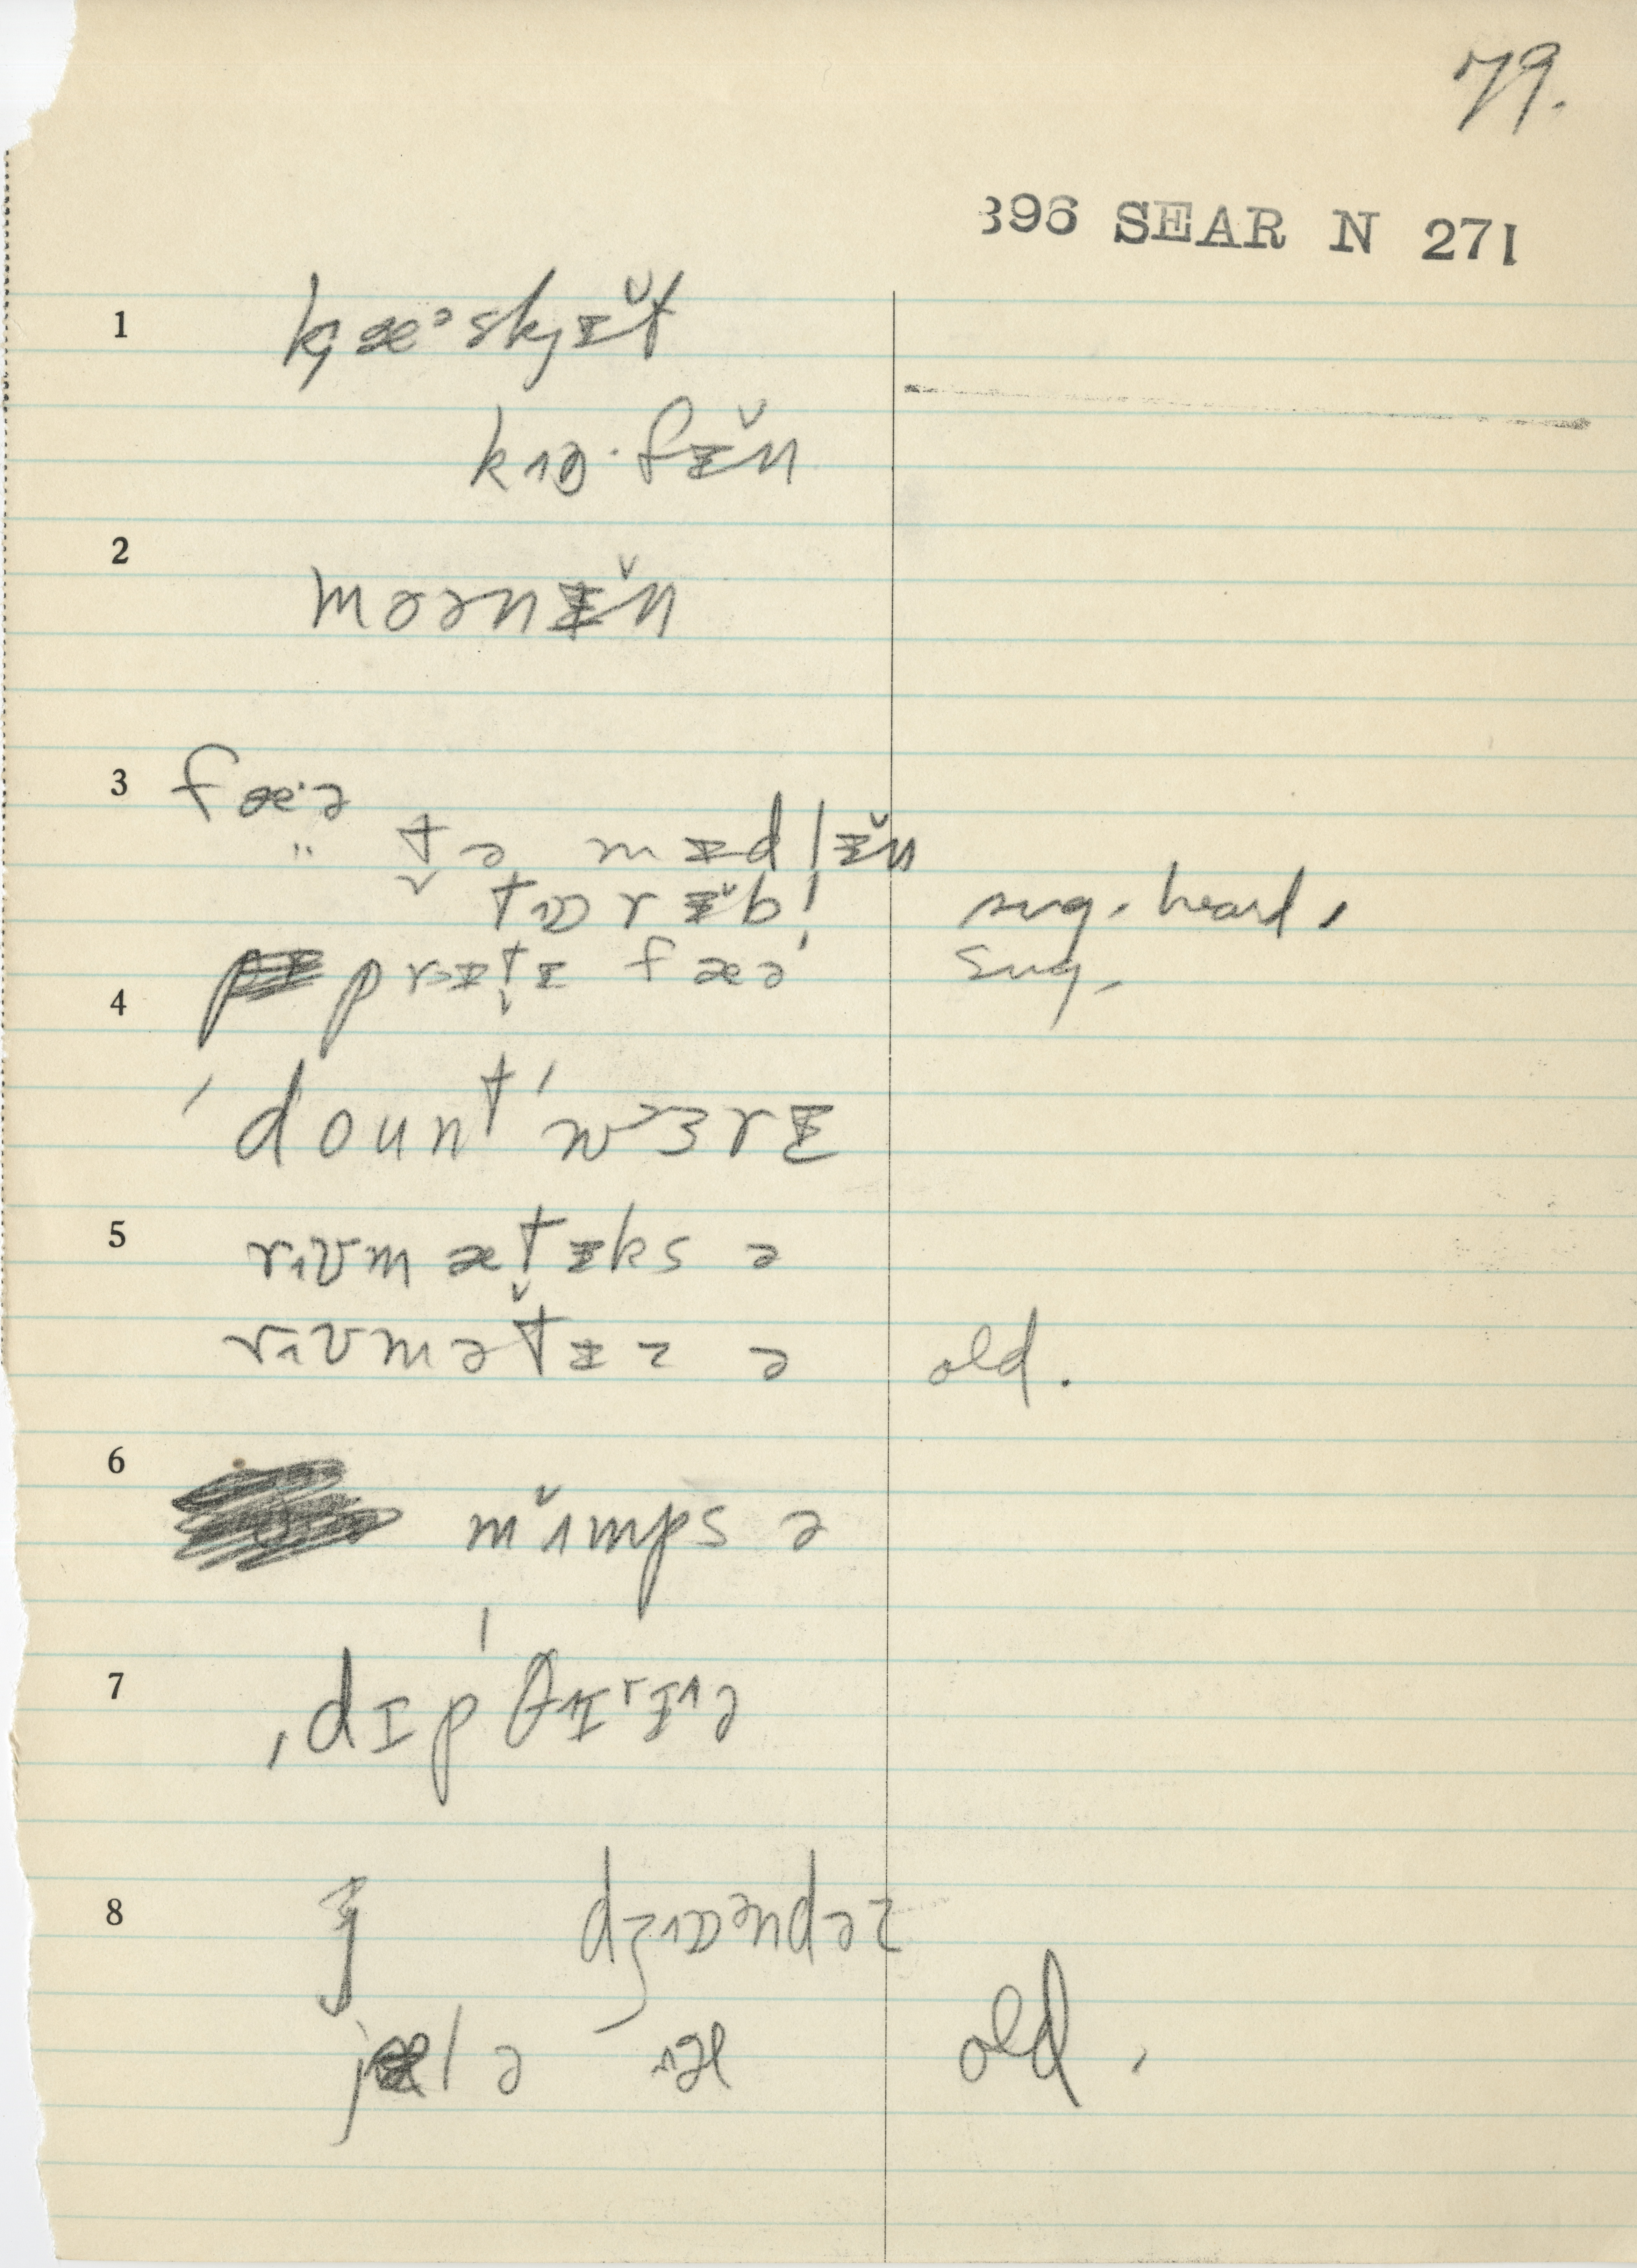 79.
396 SEAR N 271
1 kȷæᵊskȷɪ̵̆t
kɒ·fɪ̵̆n
2 moənɪ̵̆n
3 fæ·ə
" t̬ə mɪ̵dlɪ̵̆n
tɒrɪ̵̆bl̩ sug. heard.
prɪ̵t̬ɪ̵ fæə sug.
4
ˈdount ˈwɜrɪ̵
5 rʊmæt̬ɪ̵ks ə
rʊmətɪ̵z ə old.
6 mʌ̆mps ə
7 ˌdɪpˈθɪrɪə
8 dʒɒəndəz
jælə old.